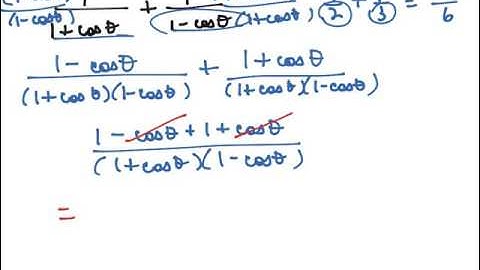 (1-cosθ) / 1+cosθ + / 1-cosθ (1+cosθ) 2 + 3 = / 6
1-cosθ / (1+cosθ)(1-cosθ) + 1+cosθ / (1+cosθ)(1-cosθ)
1-cosθ+1+cosθ / (1+cosθ)(1-cosθ)
=